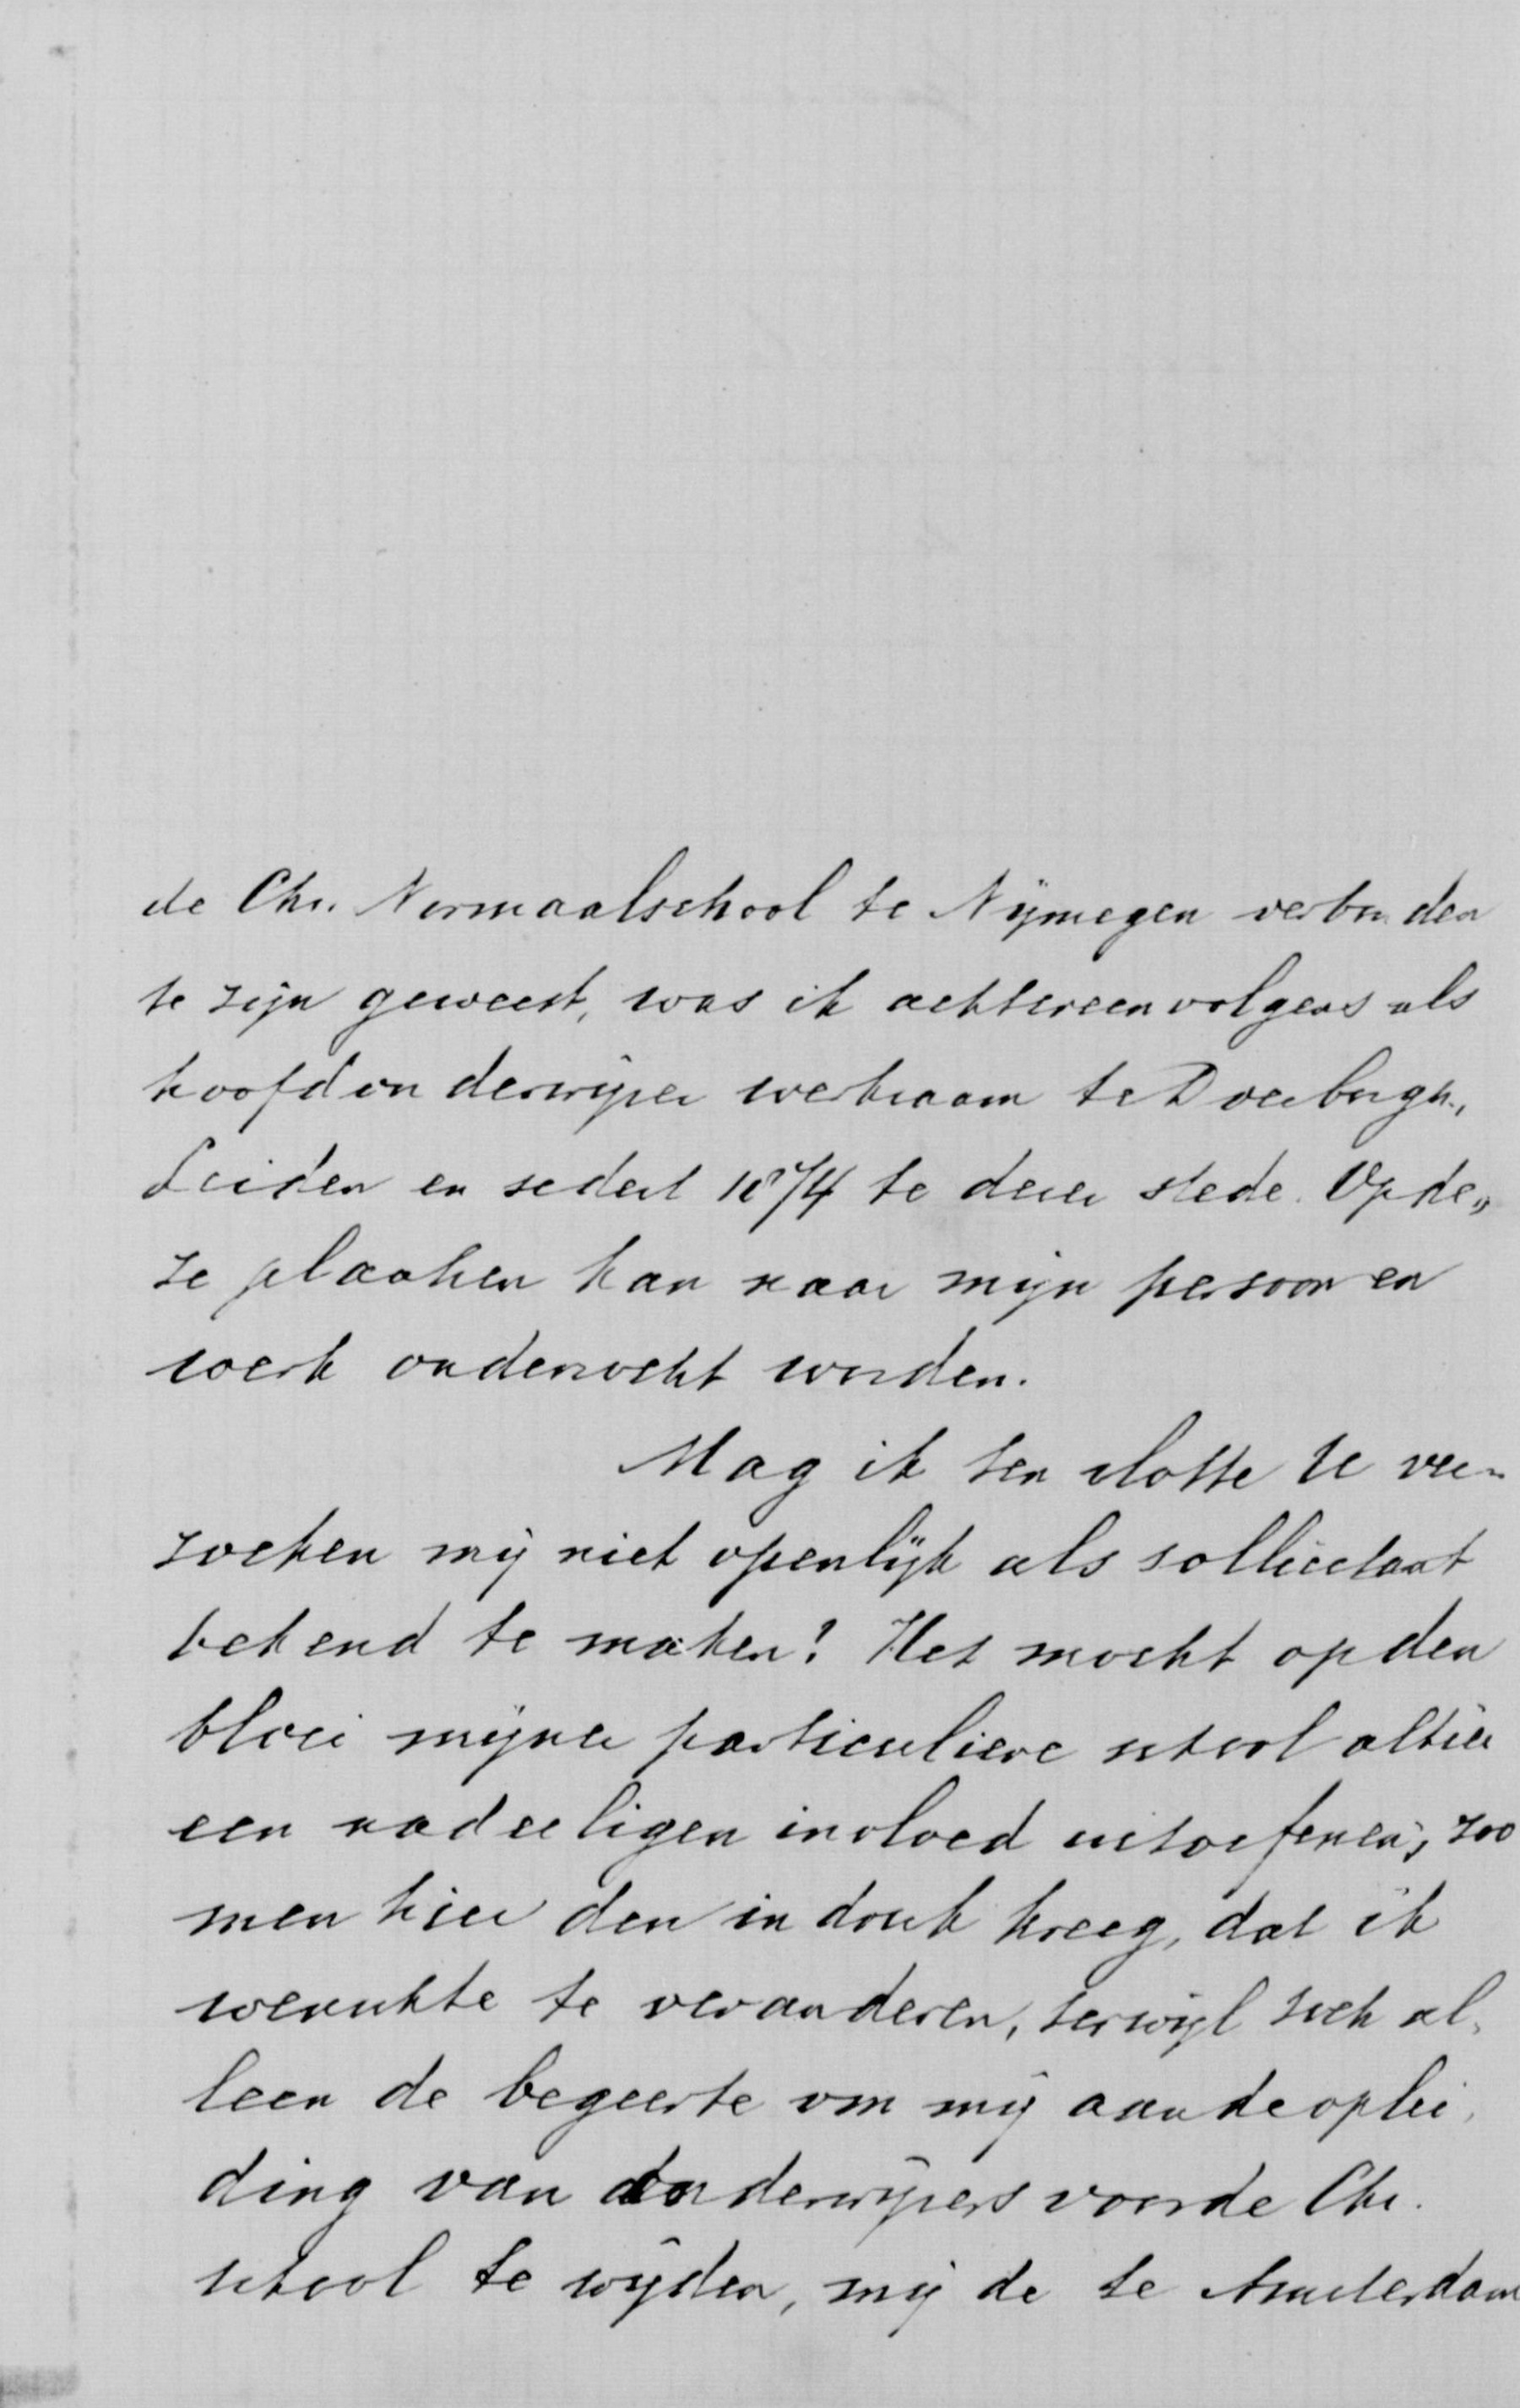 de Chr. Normaalschool te Nijmegen verbonden
te zijn geweest, was ik achtereenvolgens als
hoofdonderwijzer werkzaam te Doesburgh,
Leiden en sedert 1874 te dezer stede. Op de„
ze plaatsen kan naar mijn persoon en
werk onderzocht worden.
Mag ik ten slotte U ver-
zoeken mij niet openlijk als sollicitant
bekend te maken? Het mocht op den
bloei mijner particuliere school altier
een nadeeligen invloed uitoefenen, zoo
men hier den indruk kreeg, dat ik
wenschte te veranderen, terwijl toch al„
leen de begeerte om mij aan de oplei„
ding van onderwijzers voor de Chr.
school te wijden, mij de te Amsterdam